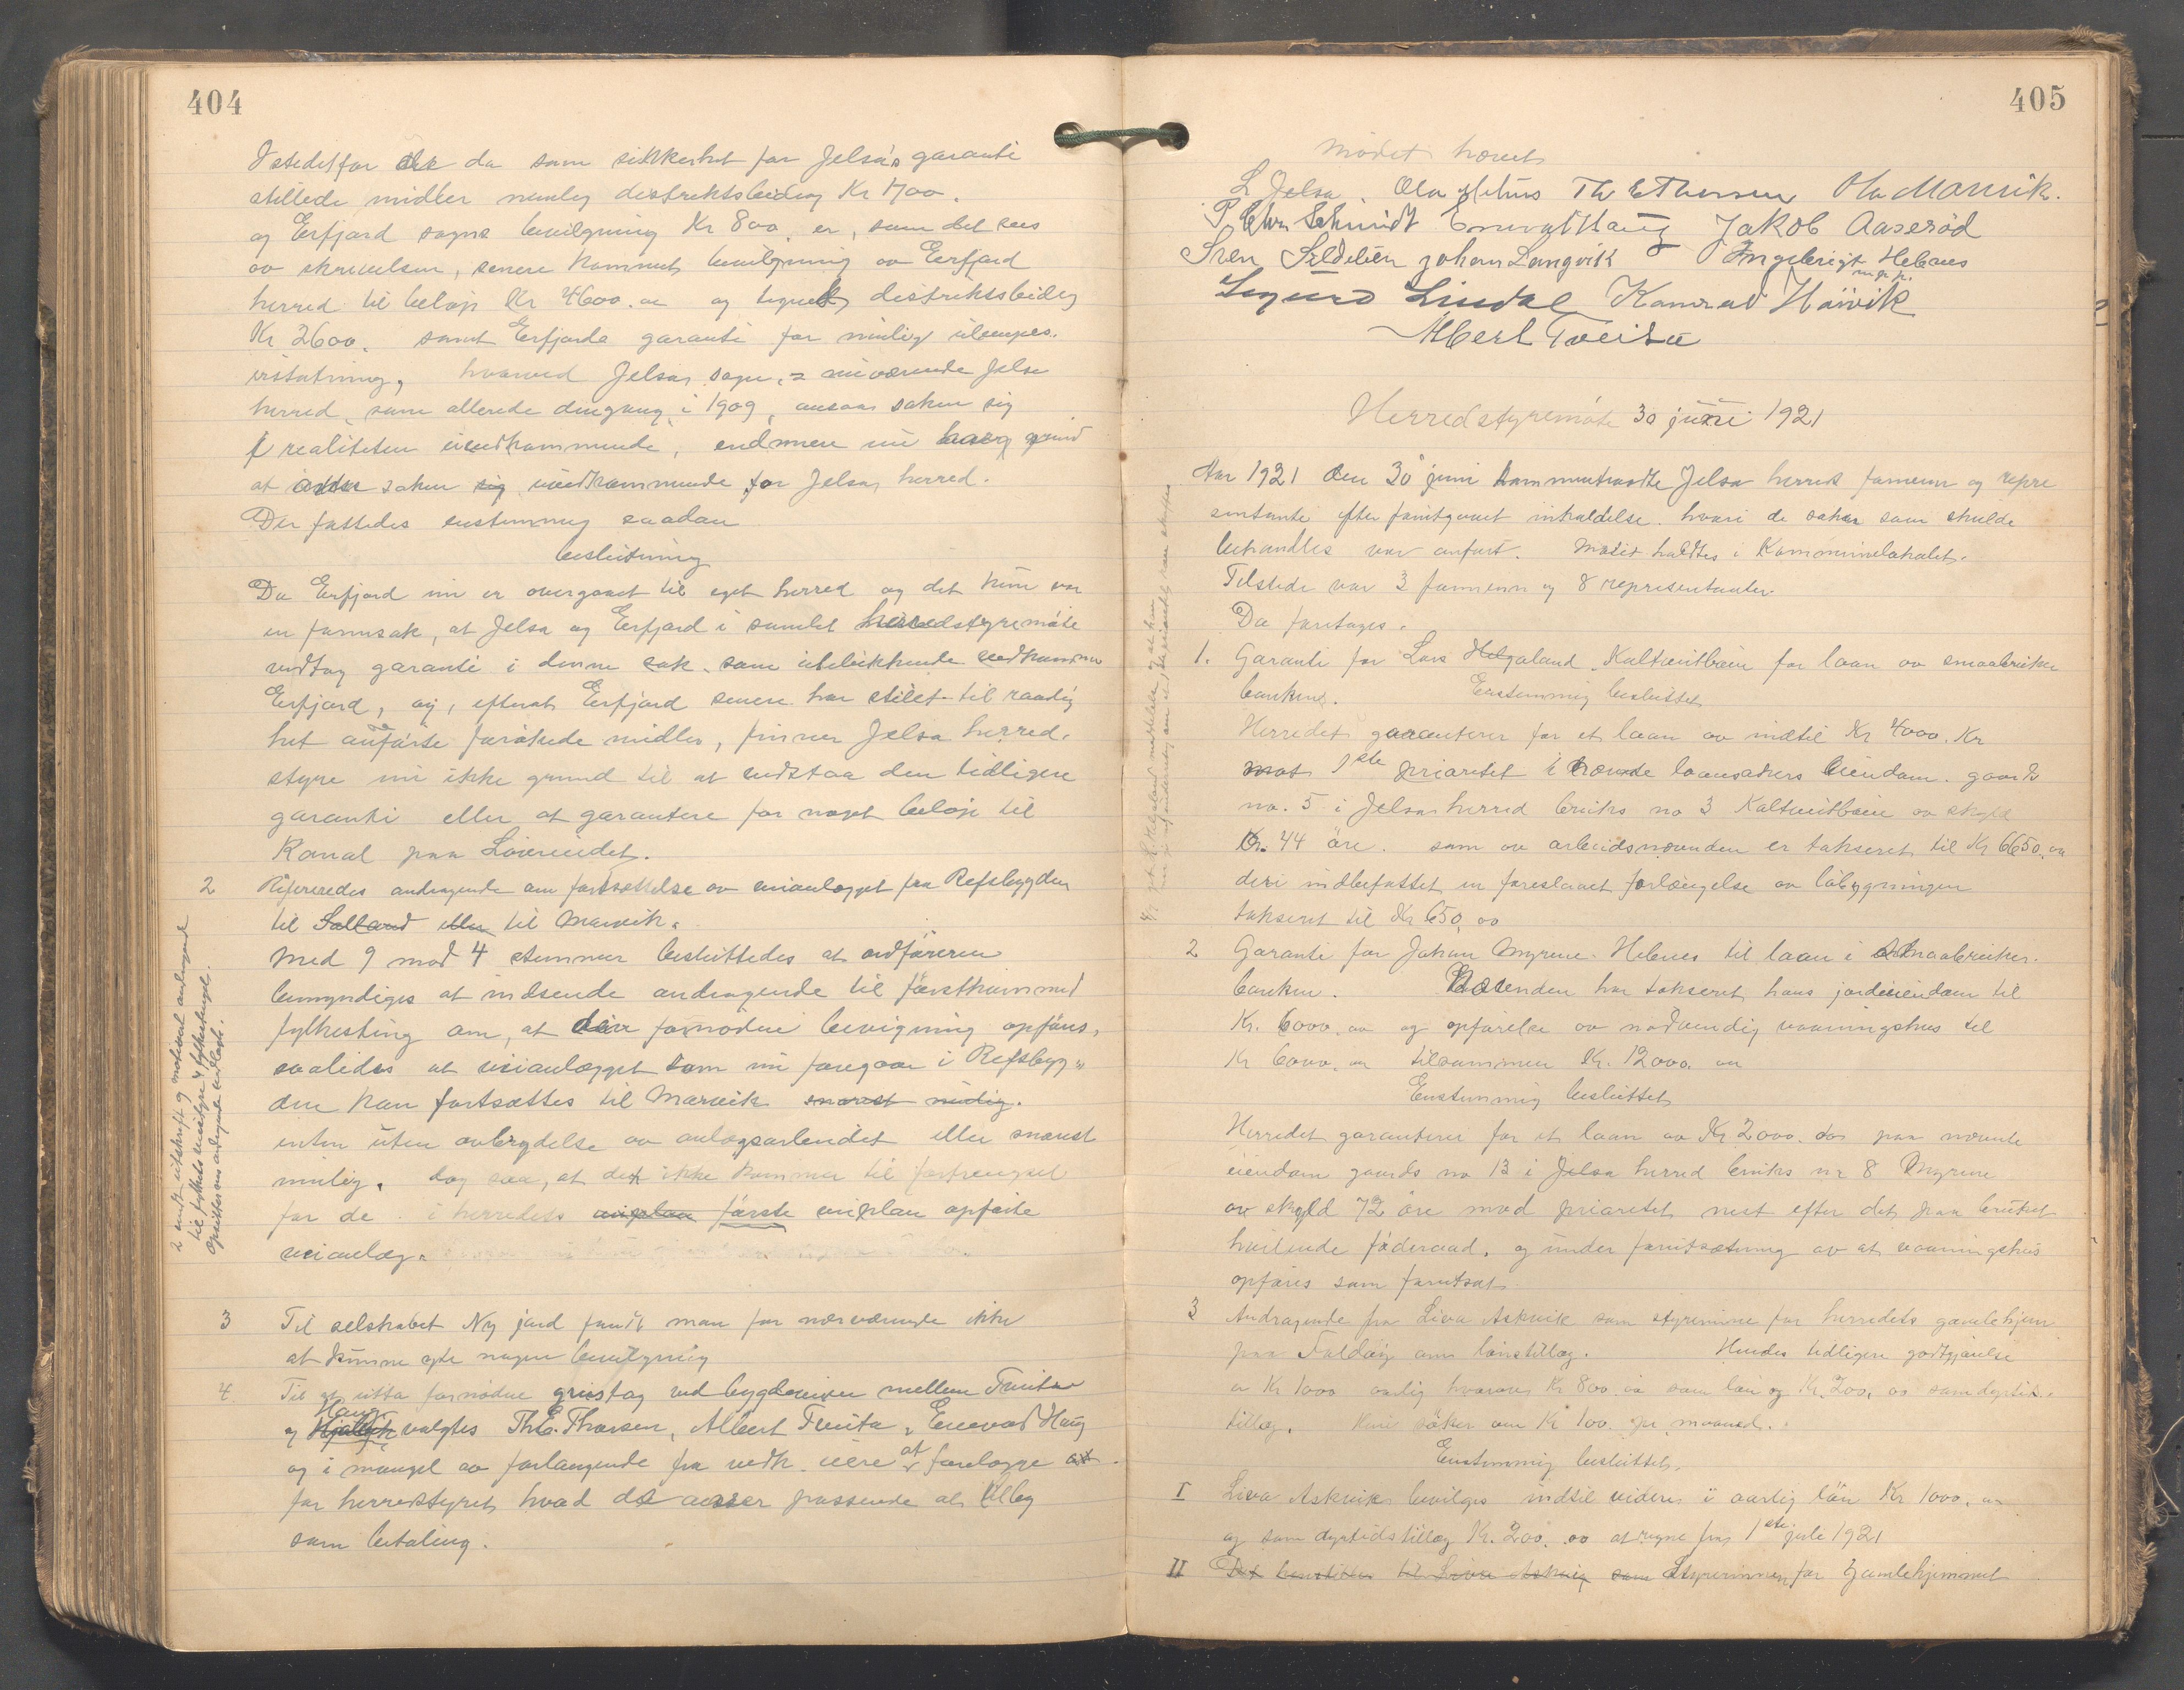 404
Istedetfor de da som sikkerhet for Jelsa's garanti
stillede midler nemlig distriktsbidrag Kr 1700.
og Erfjord sogns bevilgning Kr 800. er, som det sees
av skrivelsen, senere kommet bevilgning av Erfjord
herred til beløp Kr 4600.00 og tegnet distriktsbidrag
Kr 2600. samt Erfjords garanti for mulig ulempes-
erstatning, hvorved Jelsa sogn, = nuværende Jelsa
herred, som allerede dengang i 1909, ansaa saken sig
i realiteten uvedkommende, endmere nu har grund
at anse saken sig uvedkommende for Jelsa herred.
Der fattedes enstemmig saadan
beslutning
Da Erfjord nu er overgaaet til eget herred og det kun var
en formsak, at Jelsa og Erfjord i samlet herredstyremøte
vedtog garanti i denne sak, som utelukkende vedkommer
Erfjord, og, efterat Erfjord senere har stillet til raadig
het anførte forøkede midler, finner Jelsa herred-
styre nu ikke grund til at vedstaa den tidligere
garanti eller at garantere for noget beløp til
Kanal paa Lovreidet.
2 Refereredes andragende om fortsættelse av veianlægget fra Refsbygden
til Salland eller til Marvik.
Med 9 mod 4 stemmer besluttedes at ordføreren
bemyndiges at indsende andragende til førstkommend
fylkesting om, at den fornødne bevilgning opføres,
saaledes at veianlægget som nu foregaar i Refsbyg-
den kan fortsættes til Marvik snarest mulig.
enten uten avbrydelse av anlægsarbeidet eller snarest
mulig, dog saa, at det ikke kommer til fortrengsel
for de i herredets veiplan første veiplan opførte
veianlæg.
2 sendt utskrift og motivert andragende
til fylkets veistyre & fylkestinget.
3 Til selskabet Ny jord fandt man for nærværende ikke
at kunne yte nogen bevilgning
4 Til at utta fornødne grustag ved bygdeveien mellem Tveita
Haug
og Hjallvik valgtes Th. E. Thorsen, Albert Tveita, Enevald Haug
og i mangel av forlangende fra vedk. eiere at forelægge
for herredstyret hvad de anser passende at tilby
som betaling.
405
Mødet hævet
L Jelsa Ola Hetlus Th E Thorsen Ola Marvik.
P. Chr. Schmidt Enevald Haug Jakob Aaserød
Sven Sældelien Johan Langvik Ingebrigt Hebnes
m.p.p.
Sigurd Lindal Konrad Håvik
Albert Tveita
Herredstyremøte 30 juni 1921
Aar 1921 den 30 juni sammentraadte Jelsa herreds formenn og repre
sentante efter forutgaaet inkaldelse hvori de saker som skulde
behandles var anført. Mødet holdtes i Kommunelokalet.
Tilstede var 3 formenn og 8 representanter.
Da foretages.
1. Garanti for Lars Helgaland Kaltveitbøen for laan av smaabruker
banken. Enstemmig besluttet
Herredet garanterer for et laan av indtil Kr 4000. Kr
mot 1ste prioritet i nævnte laansøkers eiendom gaards
no. 5 i Jelsa herred bruks no 3 Kaltveitbøen av skyld
Kr. 44 øre. som av arbeidsnævnden er takseret til Kr 6650.00
deri indbefattet en foreslaaet forlængelse av løbygningen
takseret til Kr 650,00
2 Garanti for Johan Myrene Hebnes til laan i Smaabruker-
banken. Nævnden har takseret hans jordeiendom til
Kr. 6000.00 og opførelse av nødvendig vaaningshus til
Kr 6000.00 tilsammen Kr. 12000.00
Enstemmig besluttet
Herredet garanterer for et laan av Kr 2000.00 paa nævnte
eiendom gaards no 13 i Jelsa herred bruks nr 8 Myrene
av skyld 72 øre med prioritet nest efter det paa bruket
hvilende føderaad, og under forutsætning av at vaaningshus
opføres som forutsat.
3 Andragende fra Liva Askvik som styrerinne for herredets gamlehjem
paa Foldøy om lønstillæg. Hendes tidligere godtgjørelse
er Kr 1000 aarlig hvorav Kr 800.00 som løn og Kr. 200.00 som dyrtids-
tillæg. Hun søker om Kr 100 pr. maaned.
Enstemmig besluttet.
I Liva Askvik bevilges indtil videre i aarlig løn Kr 1000.00
og som dyrtidstillæg Kr. 200.00 at regne fra 1ste juli 1921
II Det henstilles til Liva Askvig som Styrerinnen for Gamlehjemmet